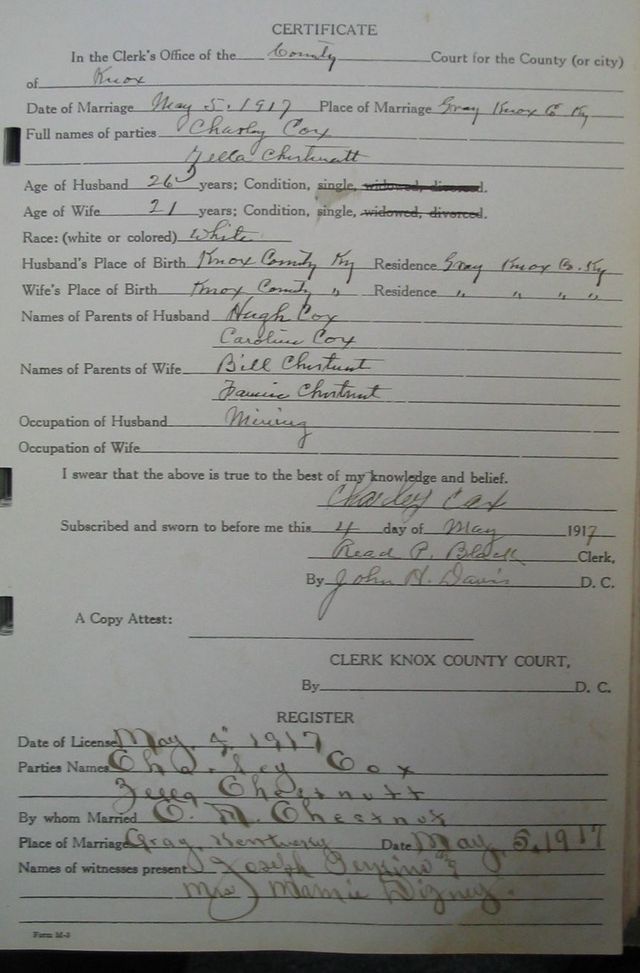 CERTIFICATE
In the Clerk's Office of the County Court for the County (or city)
of Knox
Date of Marriage May 5, 1917 Place of Marriage Gray Knox Co Ky
Full names of parties Charley Cox
Zella Chestnutt
Age of Husband 26 years; Condition, single, widowed, divorced.
Age of Wife 21 years; Condition, single, widowed, divorced.
Race: (white or colored) White
Husband's Place of Birth Knox County Ky Residence Gray Knox Co. Ky
Wife's Place of Birth Knox County " Residence " " " "
Names of Parents of Husband Hugh Cox
Caroline Cox
Names of Parents of Wife Bill Chestnut
Fannie Chestnut
Occupation of Husband Mining
Occupation of Wife
I swear that the above is true to the best of my knowledge and belief.
Charley Cox
Subscribed and sworn to before me this 4 day of May 1917
Read P. Black Clerk,
By John H. Davis D. C.
A Copy Attest:
CLERK KNOX COUNTY COURT,
By D. C.
REGISTER
Date of License May. 4, 1917
Parties Names Charley Cox
Zella Chesnutt
By whom Married C. M. Chesnut
Place of Marriage Gray, Kentucky Date May, 5, 1917
Names of witnesses present Joseph
Mrs Mamie Digney.
Form M-3